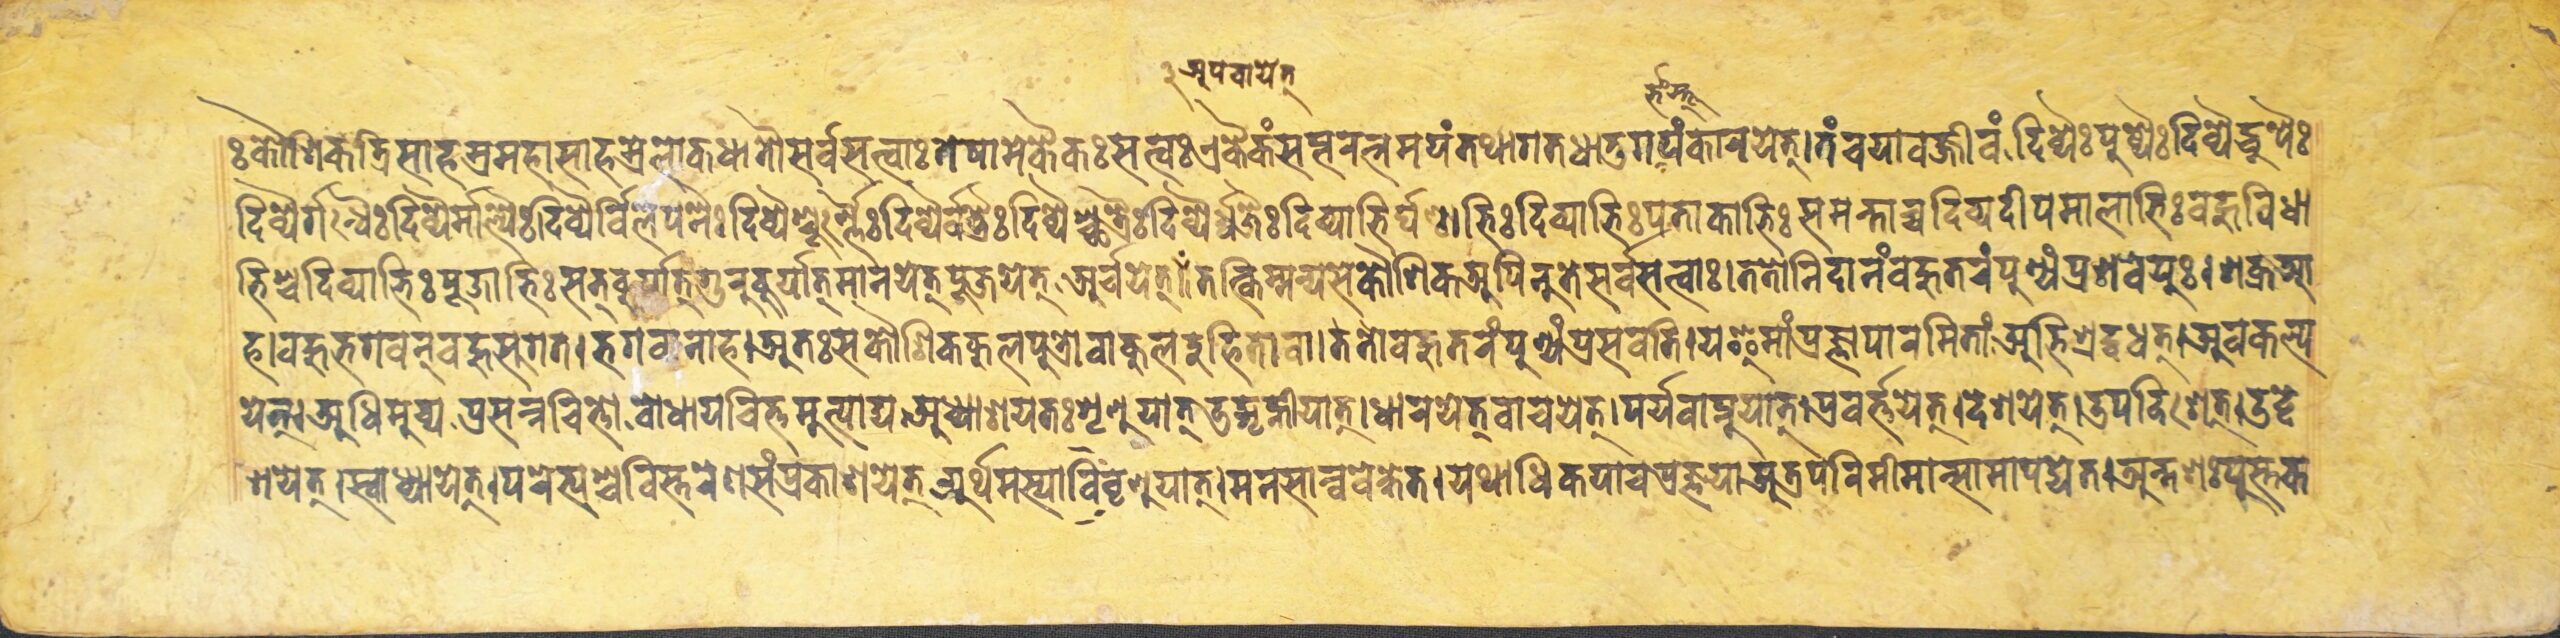 ३ अपचायेत्
र्भंस्तू
ः कौशिक त्रिसाहस्रमहासाहस्रे लोकधातौ सर्वसत्त्वाः तेषामेकैकः सत्त्वः एकैकं सप्तरत्नमयं तथागतधातुगर्पं कारयेत्। तं च यावज्जीवं दिव्यैः पुष्पैः दिव्यैर्द्धूपैः
दिव्यैर्गन्धैः दिव्यैर्माल्यैः दिव्यैर्विलेपनैः दिव्यैश्चूर्न्नैः दिव्यैर्वस्त्रैः दिव्यैश्छत्रैः दिव्यैर्ध्वजैः दिव्याभिर्घण्टाभिः दिव्याभिः पताकाभिः समन्ताच्च दिव्यदीपमालाभिः बहुविधा
भिश्च दिव्याभिः पूजाभिः सत्कुर्यात् गुरुकुर्यात् मानयेत् पूजयेत् अर्चयेत्। तत्किम्मन्यसे कौशिक अपि नु ते सर्वसत्त्वाः। ततो निदानं बहुतरं पुण्यं प्रशवेयुः। शक्र आ
ह। बहु भगवन् बहु सुगत। भगवानाह। अतः स कौशिक कुलपुत्रो वा कुलदुहिता वा। ततो बहुतरं पुण्यं प्रसवति। य इमां प्रज्ञापारमितां अभिश्रद्दधत्। अवकल्प
येत्। अधिमुच्य प्रसन्नचित्तो बोधाय चित्तमुत्पाद्य अध्याशयतः शृणुयात् उद्गृह्णीयात्। धारयेत् वाचयेत्। पर्यवाप्नुयात्। प्रवर्त्तयेत्। देशयेत्। उपदिशेत्। उद्दे
शयेत्। स्वाध्यायेत्। परेभ्यश्च विस्तरेण संप्रकाशयेत् अर्थमस्या विवृणुयात्। मनसान्ववेक्षेत। यथाधिकया च प्रज्ञया अत्र परिमीमान्सामापद्येत। अन्तशः पुस्तक